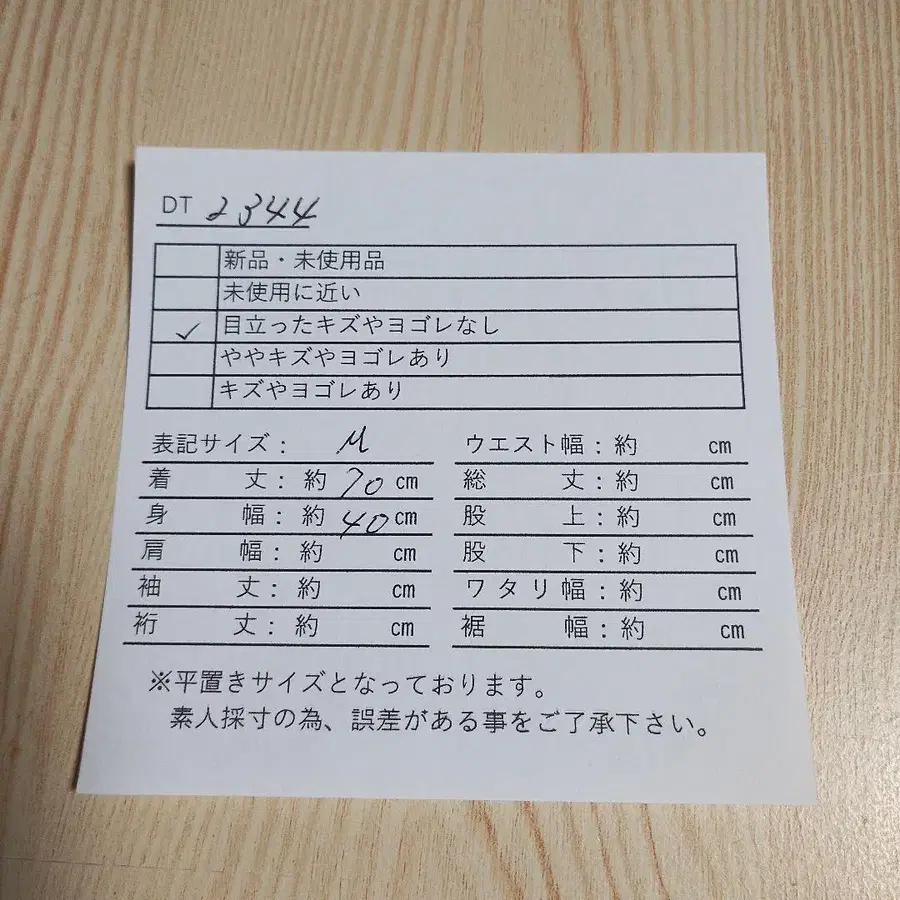 DT 2344
新品・未使用品
未使用に近い
✓ 目立ったキズやヨゴレなし
ややキズやヨゴレあり
キズやヨゴレあり
表記サイズ： M
着丈：約70cm
身幅：約40cm
肩幅：約 cm
袖丈：約 cm
裄丈：約 cm
ウエスト幅：約 cm
総丈：約 cm
股上：約 cm
股下：約 cm
ワタリ幅：約 cm
裾幅：約 cm
※平置きサイズとなっております。
素人採寸の為、誤差がある事をご了承下さい。